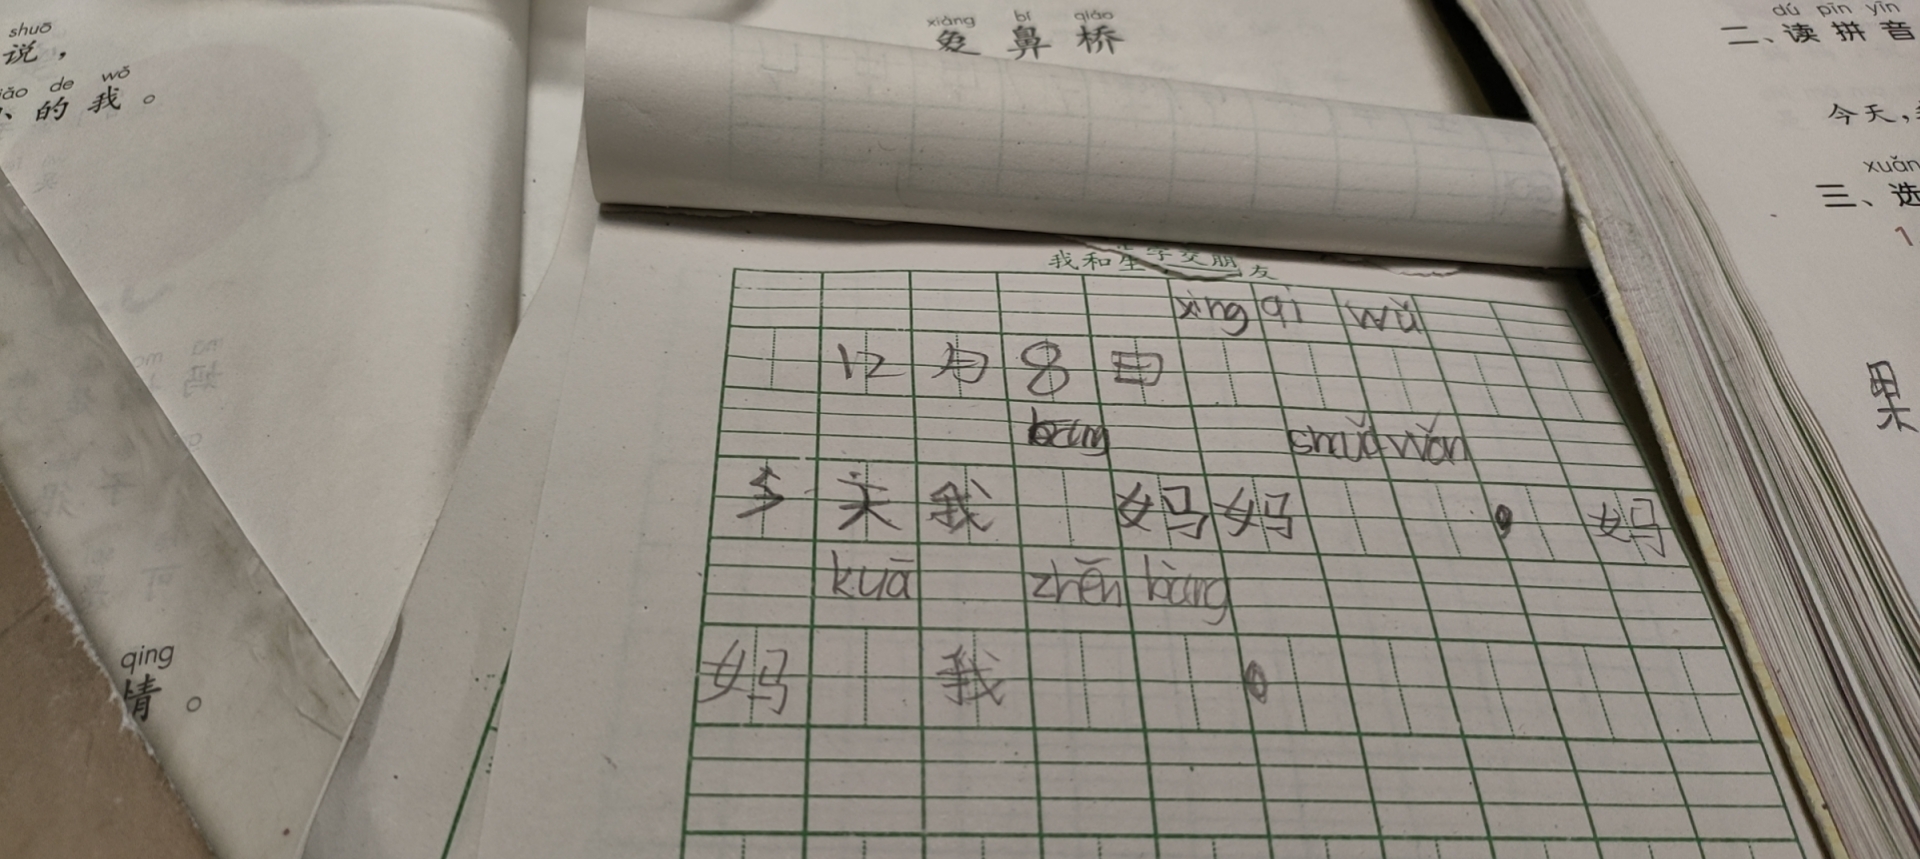 shuō
说，
ǎo de wǒ
的我。
xiàng bí qiáo
象鼻桥
dú pīn yīn
二、读拼音
今天，
xuǎn
三、选
1
果
qíng
情。
我和生字交朋友
xīng qī wǔ
12月8日
bāng shuā wǎn
今天我 妈妈 。妈
kuā zhēn bàng
妈 我 。